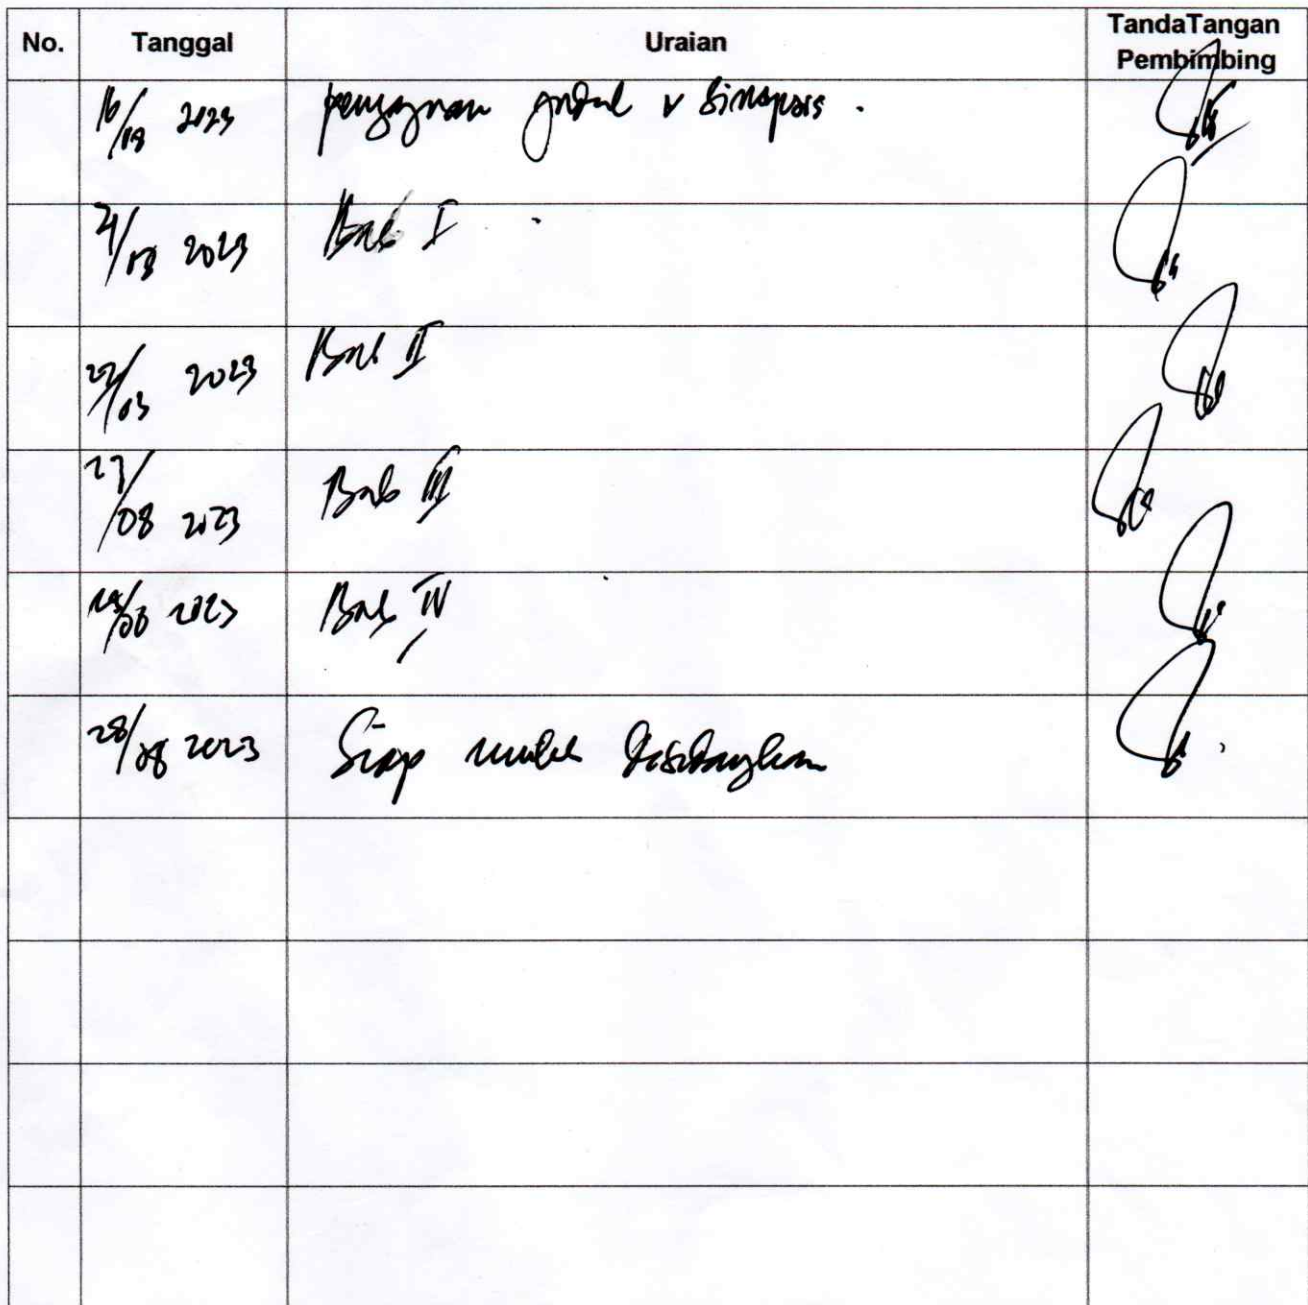 No. Tanggal Uraian TandaTangan Pembimbing
16/08 2023 pengajuan judul & Sinopsis .
21/08 2023 Bab I
22/08 2023 Bab II
23/08 2023 Bab III
2023 Bab IV
28/08 2023 Siap untuk disidangkan